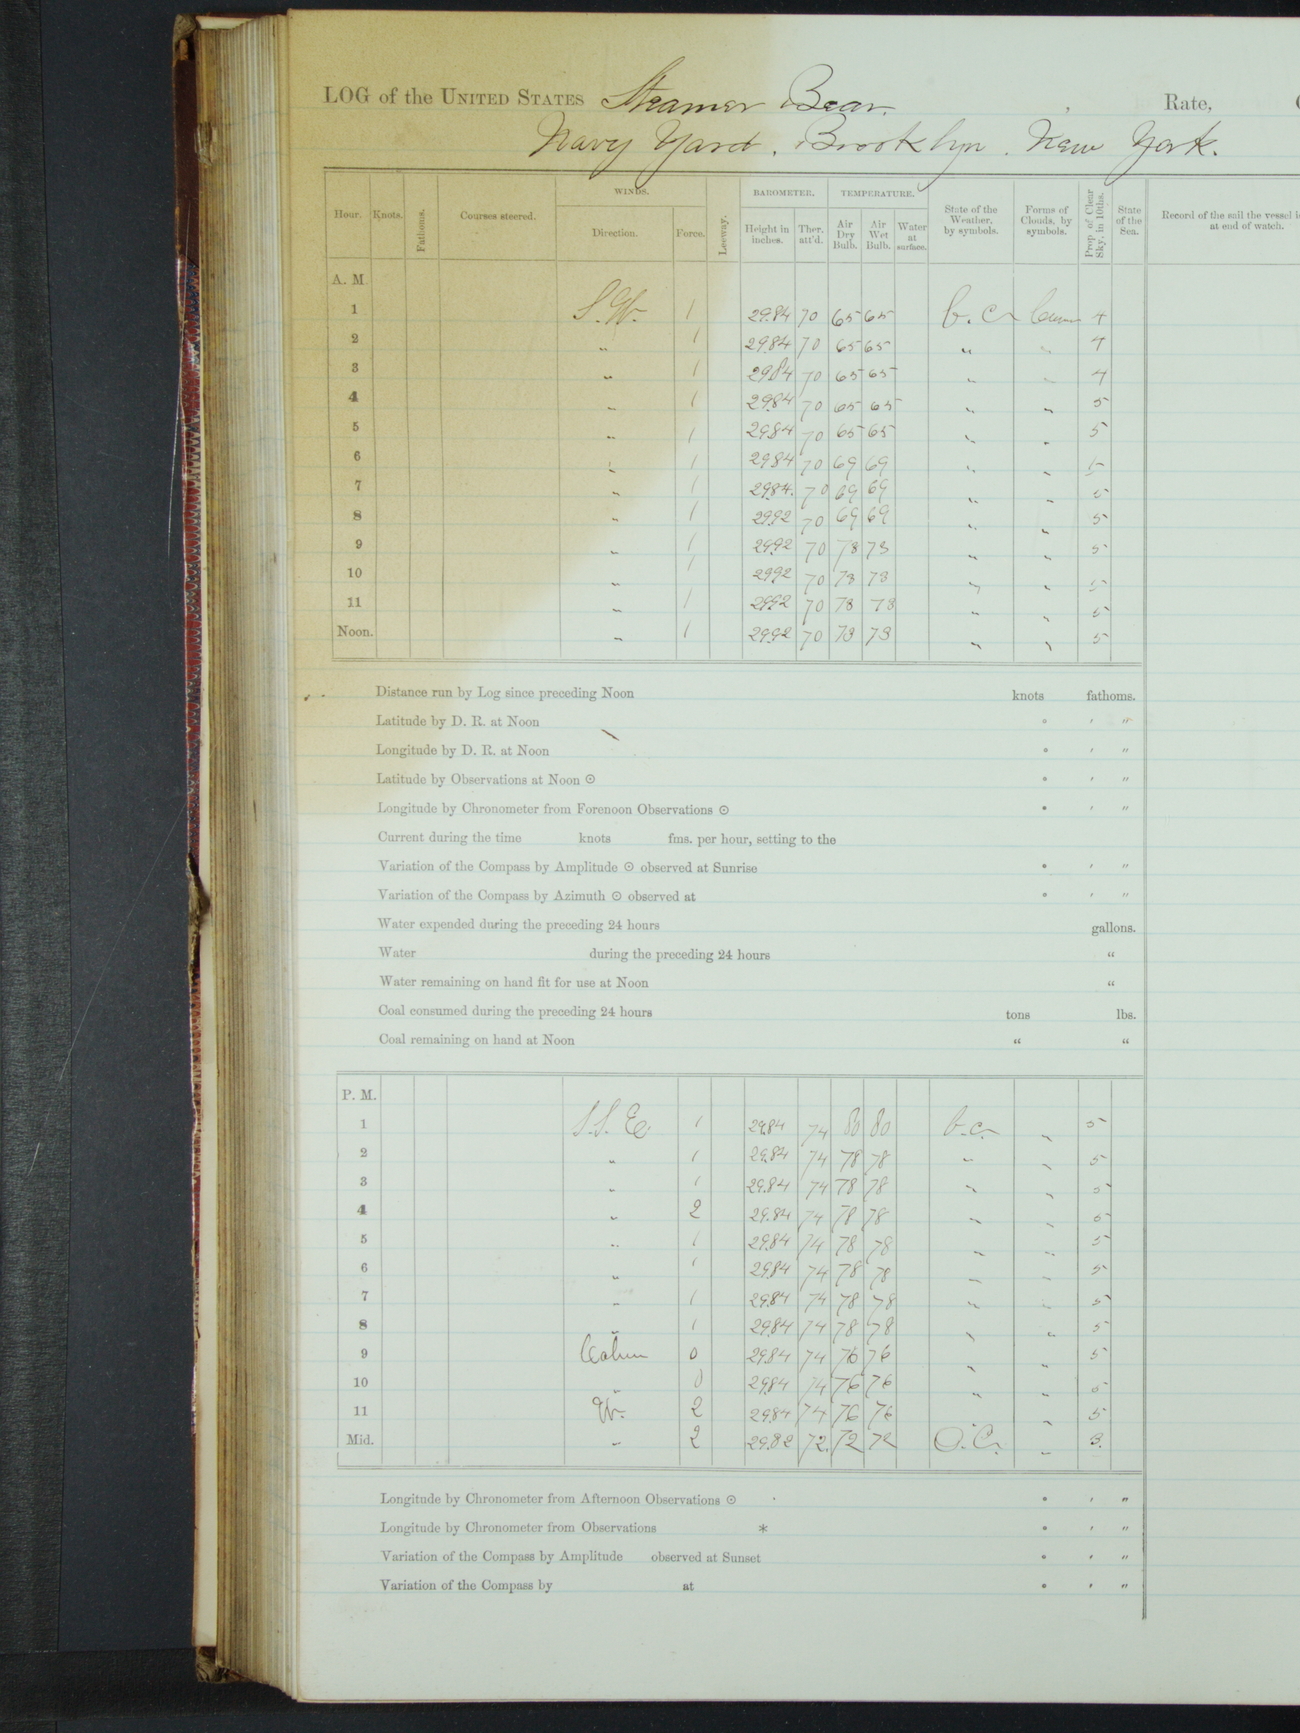 LOG of the UNITED STATES Steamer Bear. , Rate,
Navy Yard. Brooklyn. New York.
WINDS. BAROMETER. TEMPERATURE.
Hour. Knots. Fathoms. Courses steered. Direction. Force. Leeway. Height in inches. Ther. att'd. Air Dry Bulb. Air Wet Bulb. Water at surface. State of the Weather, by symbols. Forms of Clouds, by symbols. Prop. of Clear Sky, in 10ths. State of the Sea. Record of the sail the vessel i at end of watch.
A. M.
1 S.W. 1 29.84 70 65 65 b.c. Cum 4
2 " 1 29.84 70 65 65 " " 4
3 " 1 29.84 70 65 65 " " 4
4 " 1 29.84 70 65 65 " " 5
5 " 1 29.84 70 65 65 " " 5
6 " 1 29.84 70 69 69 " " 5
7 " 1 29.84. 70 69 69 " " 5
8 " 1 29.92 70 69 69 " " 5
9 " 1 29.92 70 73 73 " " 5
10 " 1 29.92 70 73 73 " " 5
11 " 1 29.92 70 73 73 " " 5
Noon. " 1 29.92 70 73 73 " " 5
Distance run by Log since preceding Noon knots fathoms.
Latitude by D. R. at Noon ° ′ ″
Longitude by D. R. at Noon ° ′ ″
Latitude by Observations at Noon ⊙ ° ′ ″
Longitude by Chronometer from Forenoon Observations ⊙ ° ′ ″
Current during the time knots fms. per hour, setting to the
Variation of the Compass by Amplitude ⊙ observed at Sunrise ° ′ ″
Variation of the Compass by Azimuth ⊙ observed at ° ′ ″
Water expended during the preceding 24 hours gallons.
Water during the preceding 24 hours "
Water remaining on hand fit for use at Noon "
Coal consumed during the preceding 24 hours tons lbs.
Coal remaining on hand at Noon " "
P. M.
1 S.S.E. 1 29.84 74 80 80 b.c. " 5
2 " 1 29.84 74 78 78 " " 5
3 " 1 29.84 74 78 78 " " 5
4 " 2 29.84 74 78 78 " " 5
5 " 1 29.84 74 78 78 " " 5
6 " 1 29.84 74 78 78 " " 5
7 " 1 29.84 74 78 78 " " 5
8 " 1 29.84 74 78 78 " " 5
9 Calm 0 29.84 74 76 76 " " 5
10 " 0 29.84 74 76 76 " " 5
11 W. 2 29.84 74 76 76 " " 5
Mid. " 2 29.82 72 72 72 O.C. " 3.
Longitude by Chronometer from Afternoon Observations ⊙ ° ′ ″
Longitude by Chronometer from Observations * ° ′ ″
Variation of the Compass by Amplitude observed at Sunset ° ′ ″
Variation of the Compass by at ° ′ ″